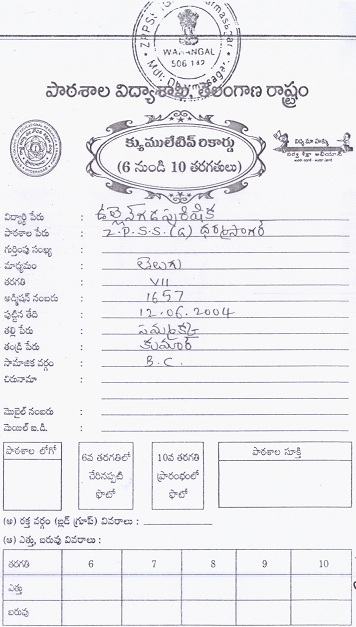 WARANGAL
506 142
పాఠశాల విద్యాశాఖ, తెలంగాణ రాష్ట్రం
క్యుములేటివ్ రికార్డు
(6 నుండి 10 తరగతులు)
విద్యార్థి పేరు :
పాఠశాల పేరు : Z.P.S.S. (G) ధర్మసాగర్
గుర్తింపు సంఖ్య :
మాధ్యమం : తెలుగు
తరగతి : VII
అడ్మిషన్ నంబరు : 1657
పుట్టిన తేది : 12.06.2004
తల్లి పేరు :
తండ్రి పేరు : కుమార్
సామాజిక వర్గం : B.C.
చిరునామా :
మొబైల్ నంబరు :
మెయిల్ ఐ.డి. :
పాఠశాల లోగో 6వ తరగతిలో చేరినప్పటి ఫొటో 10వ తరగతి ప్రారంభంలో ఫొటో పాఠశాల సూక్తి
(అ) రక్త వర్గం (బ్లడ్ గ్రూప్) వివరాలు :
(ఆ) ఎత్తు, బరువు వివరాలు :
తరగతి 6 7 8 9 10
ఎత్తు
బరువు